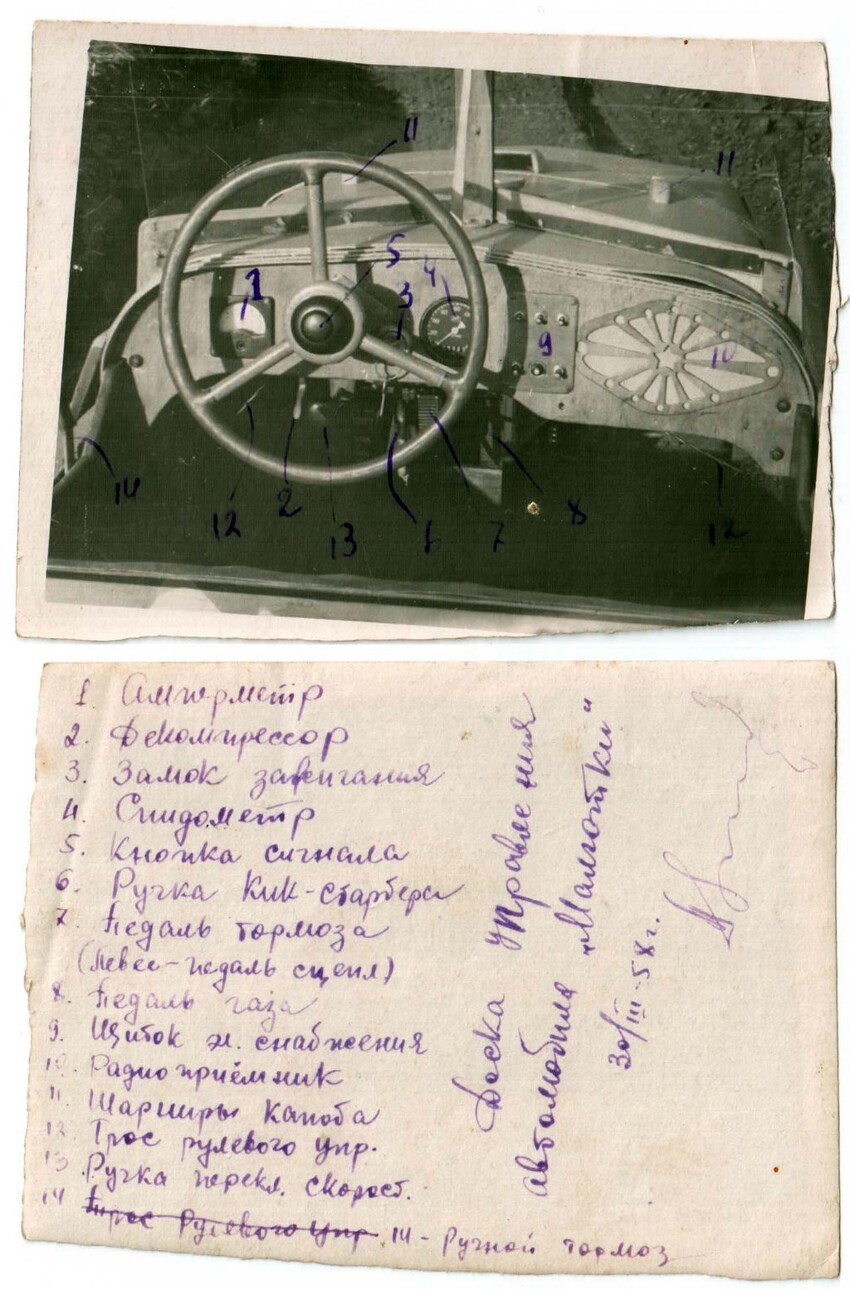 11
11
1
5
4
3
9
10
14
12
2
13
6
7
8
12
1 Амперметр
2. Декомпрессор
3. Замок зажигания
4. Спидометр
5. Кнопка сигнала
6. Ручка Кик-стартера
7. Педаль тормоза
(левее-педаль сцепл)
8. Педаль газа
9. Щиток эл. снабжения
10. Радиоприёмник
11. Шарниры капота
12. Трос рулевого упр.
13. Ручка перекл. скорост.
14 Трос рулевого упр. 14 - Ручной тормоз
Доска управления
автомобиля „Малютки"
30/III-58 г.